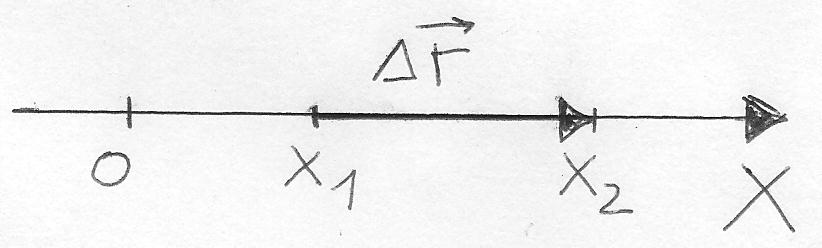 Δr⃗
0 x₁ x₂ X